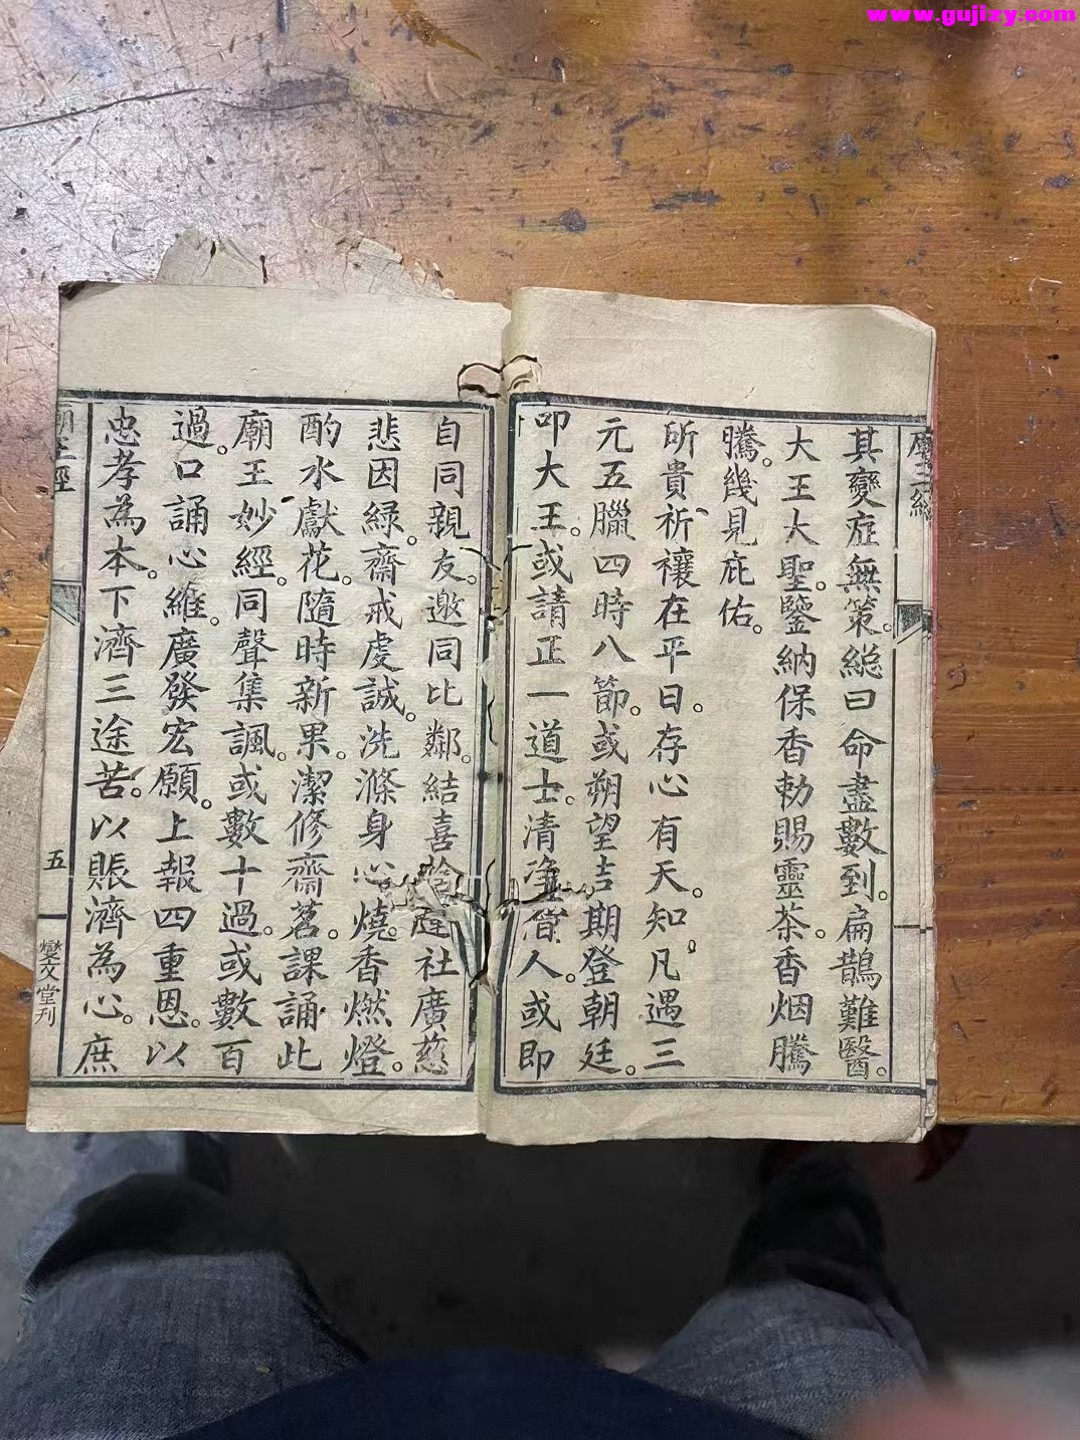 www.gujizy.com
廟王經
其變症無策。総曰命盡數到。扁鵲難醫。
大王大聖。鑒納保香勅賜靈茶。香烟騰
騰。幾見庇佑。
所貴祈禳在平日。存心有天。知凡遇三
元五臘四時八節。或朔望吉期登朝廷。
叩大王。或請正一道士。清淨僧人。或即
自同親友。邀同比鄰。結喜社廣慈
悲因緑。齋戒虔誠。洗滌身心。燒香燃燈。
酌水獻花。隨時新果。潔修齋茗。課誦此
廟王妙經。同聲集諷。或數十過。或數百
過。口誦心維。廣發宏願。上報四重恩。以
忠孝為本。下濟三途苦。以賬濟為心。庶
廟王經
五
燮文堂刊